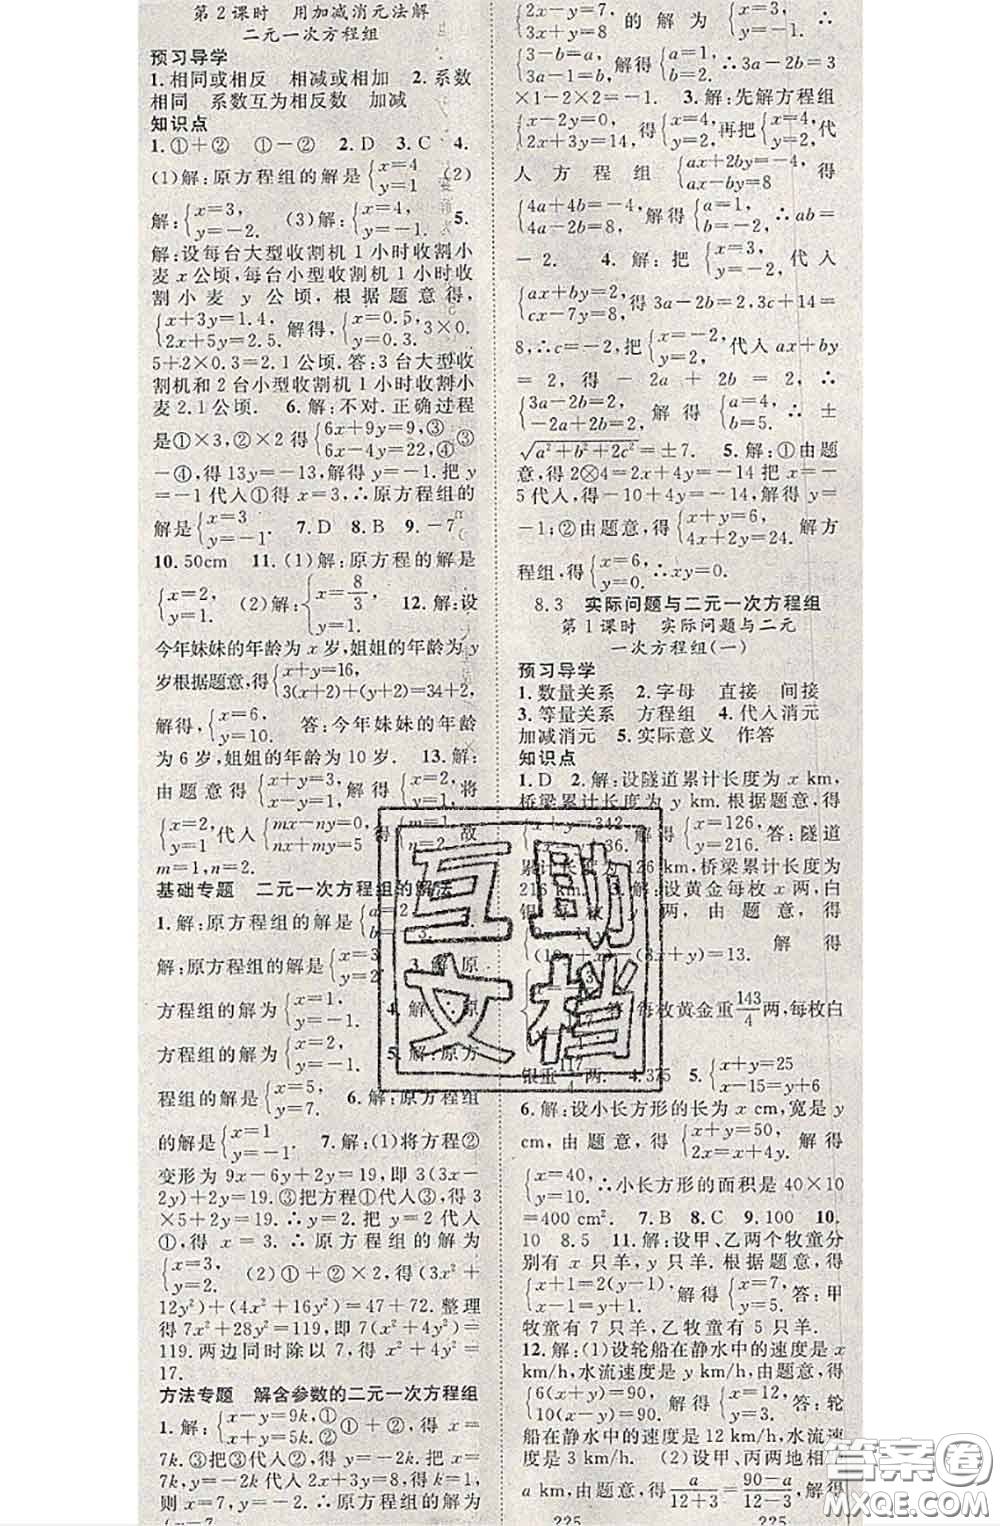 第2课时 用加减消元法解
二元一次方程组
预习导学
1.相同或相反 相减或相加 2.系数
相同 系数互为相反数 加减
知识点
1.①+② ①-② 2.D 3.C 4.
(1)解:原方程组的解是{x=4 y=1 (2)
解:{x=3, y=-2. (3)解:{x=4, y=1. 5.
解:设每台大型收割机1小时收割小
麦x公顷,每台小型收割机1小时收
割小麦y公顷,根据题意得,
{x+3y=1.4, 2x+5y=2.5. 解得,{x=0.5, y=0.3. 3×0.
5+2×0.3=2.1公顷.答:3台大型收
割机和2台小型收割机1小时收割小
麦2.1公顷. 6.解:不对.正确过程
是①×3,②×2得{6x+9y=9,③ 6x-4y=22,④ ③
-④,得13y=-13,解得y=-1.把y
=-1代入①得x=3,∴原方程组的
解是{x=3 y=-1. 7.D 8.B 9.-7
10.50cm 11.(1)解:原方程的解是
{x=2, y=1. (2)解:{x=8/3, y=1. 12.解:设
今年妹妹的年龄为x岁,姐姐的年龄为y
岁根据题意,得{x+y=16, 3(x+2)+(y+2)=34+2,
解得,{x=6, y=10. 答:今年妹妹的年龄
为6岁,姐姐的年龄为10岁. 13.解:
由题意得{x+y=3, x-y=1. 解得{x=2, y=1. 将
{x=2, y=1 代入{mx-ny=0, nx+my=5 得{m=1, n=2. 故
m=1,n=2.
基础专题 二元一次方程组的解法
1.解:原方程组的解是{a=2 b=3.
解:原方程组的解是{x=3, y=-1. 3.解:原
方程组的解为{x=1, y=-1. 4.解:原
方程组的解为{x=2, y=-1. 5.解:原方
程组的解是{x=5, y=7. 6.解:原方程组
的解是{x=1 y=-1. 7.解:(1)将方程②
变形为9x-6y+2y=19,即3(3x-
2y)+2y=19.③把方程①代入③,得3
×5+2y=19.∴y=2.把y=2代入
①,得x=3.∴方程组的解为
{x=3, y=2. (2)①+②×2,得(3x²+
12y²)+(4x²+16y²)=47+72.整理
得7x²+28y²=119,即7(x²+4y²)=
119.两边同时除以7,得x²+4y²=
17.
方法专题 解含参数的二元一次方程组
1.解:{x-y=9k,① x+y=5k.② ①+②,得x=
7k.把③代入②,得y=-2k.把x=
7k,y=-2k代入2x+3y=8,得k=1,
则x=7,y=-2.∴原方程组的解为
{x=7
{2x-y=0, 3x+y=8. ∴解得
{3-b=a, 解得 ∴3a-2b=3
×1-2×2=-1. 3.解:先解方程组
{x-2y=0, 2x+y=10. 得{x=4, y=2, 再把{x=4, y=2, 代
人方程组{ax+2by=-4, ax-by=8 得
{4a+4b=-4, 4a-2b=8. 解得{a=1, b=-2, ∴ab=
-2. 4.解:把{x=3, y=-2, 代入
{ax+by=2, cx-7y=8, 得3a-2b=2,3c+14=
8,∴c=-2,把{x=-2, y=2, 代入ax+by
=2,得-2a+2b=2,∴
{3a-2b=2, -2a+2b=2. 解得{a=4, b=5. ∴±
√a²+b²+2c²=±7. 5.解:①由题
意,得2⊗4=2x+4y=-14把x=-
5代入,得-10+4y=-14,解得y=
-1;②由题意,得{x+y=6, 4x+2y=24. 解方
程组,得{x=6, y=0. ∴xy=0.
8.3 实际问题与二元一次方程组
第1课时 实际问题与二元
一次方程组(一)
预习导学
1.数量关系 2.字母 直接 间接
3.等量关系 方程组 4.代入消元
加减消元 5.实际意义 作答
知识点
1.D 2.解:设隧道累计长度为x km,
桥梁累计长度为y km.根据题意,得
{x+y=342, 解得{x=126, y=216. 答:隧道
累计长度为126 km,桥梁累计长度为
216 km. 3.解:设黄金每枚x两,白
银 y两,由题意,得
(8x+y)=13. 解得
每枚黄金重143/4两,每枚白
银重117/4两. 4.375 5.{x+y=25 x-15=y+6
6.解:设小长方形的长为x cm,宽是y
cm,由题意,得{x+y=50, 2x=x+4y. 解得
{x=40, y=10. ∴小长方形的面积是40×10
=400 cm². 7.B 8.C 9.100 10.
10 8.5 11.解:设甲、乙两个牧童分
别有x只羊,y只羊.根据题意,得
{x+1=2(y-1), x-1=y+1. 解得{x=7, y=5. 答:甲
牧童有7只羊,乙牧童有5只羊.
12.解:(1)设轮船在静水中的速度是x
km/h,水流速度是y km/h,由题意,得
{6(x+y)=90, 10(x-y)=90. 解得{x=12, y=3. 答:轮
船在静水中的速度是12 km/h,水流速
度是3 km/h. (2)设甲、丙两地相距
a km,由题意,得a/12+3=90-a/12-3,解得
225
225
互助文档
答案圈
MXQE.COM